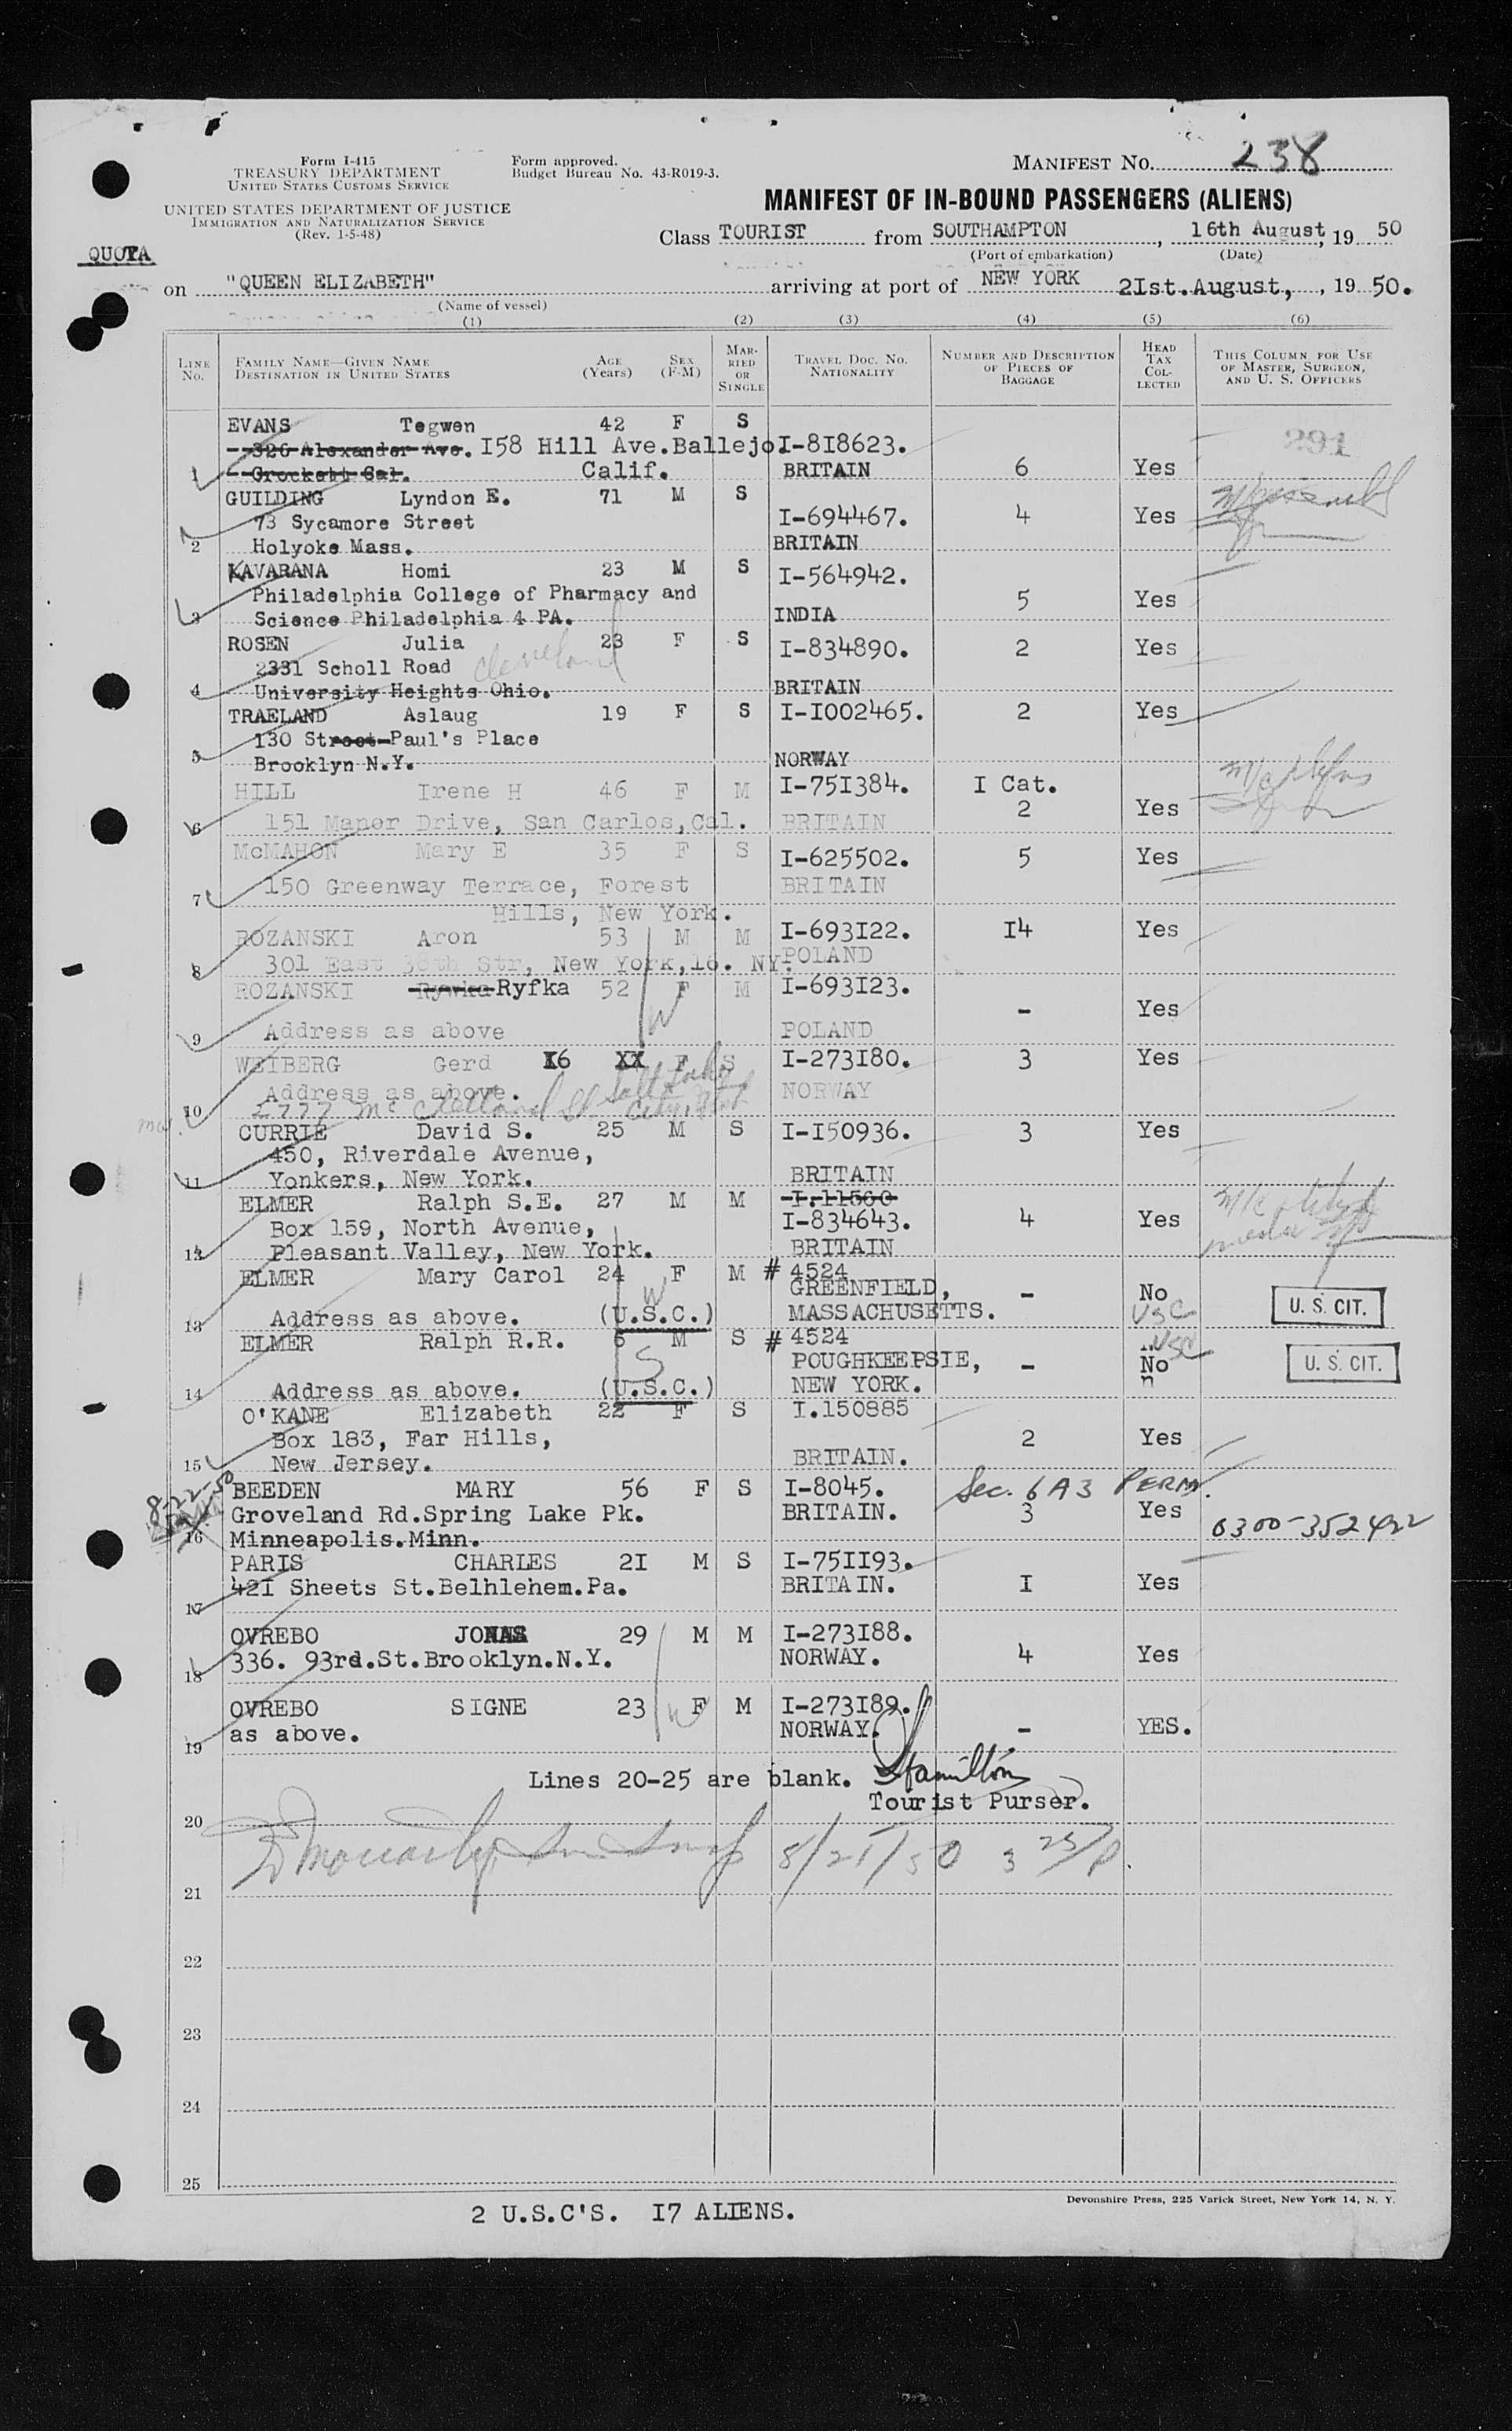 Form I-415
TREASURY DEPARTMENT
UNITED STATES CUSTOMS SERVICE
UNITED STATES DEPARTMENT OF JUSTICE
IMMIGRATION AND NATURALIZATION SERVICE
(Rev. 1-5-48)
Form approved.
Budget Bureau No. 43-R019-3.
MANIFEST NO. 238
MANIFEST OF IN-BOUND PASSENGERS (ALIENS)
QUOTA
Class TOURIST from SOUTHAMPTON, 16th August, 19 50
(Port of embarkation) (Date)
on "QUEEN ELIZABETH" arriving at port of NEW YORK 2Ist.August,, 19 50.
(Name of vessel)
(1) (2) (3) (4) (5) (6)
LINE NO.
FAMILY NAME—GIVEN NAME
DESTINATION IN UNITED STATES
AGE (Years)
SEX (F-M)
MARRIED OR SINGLE
TRAVEL DOC. NO. NATIONALITY
NUMBER AND DESCRIPTION OF PIECES OF BAGGAGE
HEAD TAX COLLECTED
THIS COLUMN FOR USE OF MASTER, SURGEON, AND U. S. OFFICERS
EVANS Tegwen 42 F S 291
326 Alexander Ave. I58 Hill Ave.Ballejo. I-8I8623.
1 Crockett Cal. Calif. BRITAIN 6 Yes
GUILDING Lyndon E. 71 M S
73 Sycamore Street I-694467. 4 Yes
2 Holyoke Mass. BRITAIN
KAVARANA Homi 23 M S I-564942.
Philadelphia College of Pharmacy and 5 Yes
3 Science Philadelphia 4 PA. INDIA
ROSEN Julia 23 F S I-834890. 2 Yes
2331 Scholl Road Cleveland
4 University Heights Ohio. BRITAIN
TRAELAND Aslaug 19 F S I-I002465. 2 Yes
130 Street Paul's Place
5 Brooklyn N.Y. NORWAY
HILL Irene H 46 F M I-75I384. I Cat.
6 151 Manor Drive, San Carlos,Cal. BRITAIN 2 Yes
McMAHON Mary E 35 F S I-625502. 5 Yes
7 150 Greenway Terrace, Forest BRITAIN
Hills, New York.
ROZANSKI Aron 53 M M I-693I22. I4 Yes
8 301 East 38th Str, New York,16. NY. POLAND
ROZANSKI Ryfka 52 F M I-693I23. - Yes
W
9 Address as above POLAND
WEIBERG Gerd I6 XX F S I-273I80. 3 Yes
Address as above. NORWAY
10 2777 Mc Clelland St. Salt Lake City, Utah
CURRIE David S. 25 M S I-I50936. 3 Yes
450, Riverdale Avenue,
11 Yonkers, New York. BRITAIN
ELMER Ralph S.E. 27 M M I.11560
Box 159, North Avenue, I-834643. 4 Yes
12 Pleasant Valley, New York. BRITAIN
ELMER Mary Carol 24 F M # 4524
W GREENFIELD, - No
13 Address as above. (U.S.C.) MASSACHUSETTS. USC U. S. CIT.
ELMER Ralph R.R. 6 M S # 4524 USC
S POUGHKEEPSIE, - No U. S. CIT.
14 Address as above. (U.S.C.) NEW YORK.
O'KANE Elizabeth 22 F S I.150885
Box 183, Far Hills, 2 Yes
15 New Jersey. BRITAIN.
8-22-50
BEEDEN MARY 56 F S I-8045. Sec. 6A3 PERM.
Groveland Rd.Spring Lake Pk. BRITAIN. 3 Yes
16 Minneapolis.Minn. 0300-352422
PARIS CHARLES 2I M S I-75II93.
17 42I Sheets St.Belhlehem.Pa. BRITAIN. I Yes
OVREBO JONAS 29 M M I-273I88.
18 336. 93rd.St.Brooklyn.N.Y. NORWAY. 4 Yes
OVREBO SIGNE 23 W F M I-273I89.
19 as above. NORWAY. - YES.
Lines 20-25 are blank. Hamilton
Tourist Purser.
20
8/21/50 3 25/P.
21
22
23
24
25
Devonshire Press, 225 Varick Street, New York 14, N. Y.
2 U.S.C'S. I7 ALIENS.